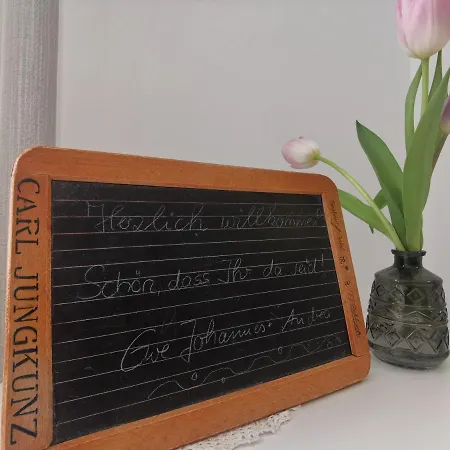 CARL JUNGKUNZ
Herzlich willkommen!
Schön, dass Ihr da seid!
Eure Johannes + Andrea